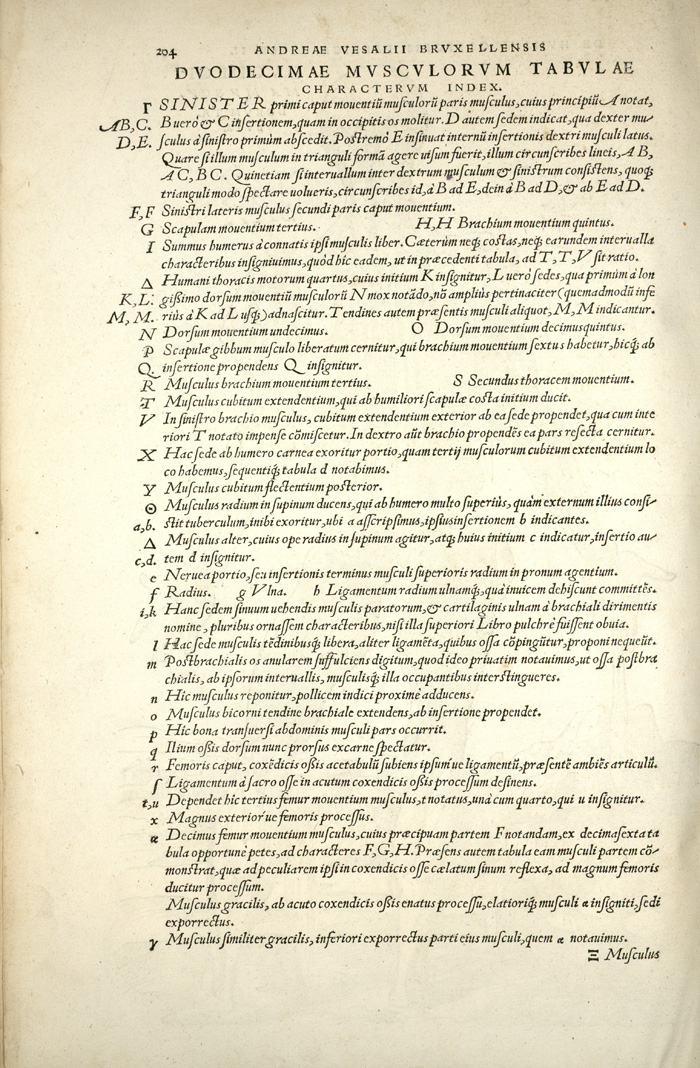 204
ANDREAE VESALII BRVXELLENSIS
DVODECIMAE MVSCVLORVM TABVLAE
CHARACTERVM INDEX.
Γ SINISTER primi caput mouentiũ musculorũ paris musculus, cuius principiũ A notat,
A B, C. B uerò & C insertionem, quam in occipitis os molitur. D autem sedem indicat, qua dexter mu-
D, E. sculus à sinistro primùm abscedit. Postremò E insinuat internũ insertionis dextri musculi latus.
Quare si illum musculum in trianguli formã agere uisum fuerit, illum circunscribes lineis, A B,
A C, B C. Quinetiam si interuallum inter dextrum musculum & sinistrum consistens, quoq;
trianguli modo spectare uolueris, circunscribes id, à B ad E, dein à B ad D, & ab E ad D.
F, F Sinistri lateris musculus secundi paris caput mouentium.
G Scapulam mouentium tertius. H, H Brachium mouentium quintus.
I Summus humerus à connatis ipsi musculis liber. Cæterùm neq; costas, neq; earundem interualla
characteribus insigniuimus, quòd hic eadem, ut in præcedenti tabula, ad T, T, V sit ratio.
Δ Humani thoracis motorum quartus, cuius initium K insignitur, L uerò sedes, qua primùm à lon
K, L. gißimo dorsum mouentiũ musculorũ N mox notãdo, nõ ampliùs pertinaciter (quemadmodũ infe
M, M. riùs à K ad L usq;) adnascitur. Tendines autem præsentis musculi aliquot, M, M indicantur.
N Dorsum mouentium undecimus. O Dorsum mouentium decimusquintus.
P Scapulæ gibbum musculo liberatum cernitur, qui brachium mouentium sextus habetur, hicq; ab
Q insertione propendens Q insignitur.
R Musculus brachium mouentium tertius. S Secundus thoracem mouentium.
T Musculus cubitum extendentium, qui ab humiliori scapulæ costa initium ducit.
V In sinistro brachio musculus, cubitum extendentium exterior ab ea sede propendet, qua cum inte
riori T notato impensè cõmiscetur. In dextro aũt brachio propendẽs ea pars resecta cernitur.
X Hac sede ab humero carnea exoritur portio, quam tertij musculorum cubitum extendentium lo
co habemus, sequentiq; tabula d notabimus.
Y Musculus cubitum flectentium posterior.
Θ Musculus radium in supinum ducens, qui ab humero multo superiùs, quàm externum illius consi-
a, b. stit tuberculum, inibi exoritur, ubi a asscripsimus, ipsius insertionem b indicantes.
Δ Musculus alter, cuius ope radius in supinum agitur, atq; huius initium c indicatur, insertio au-
c, d. tem d insignitur.
e Neruea portio, seu insertionis terminus musculi superioris radium in pronum agentium.
f Radius. g Vlna. h Ligamentum radium ulnamq;, quà inuicem dehiscunt committẽs.
i, k Hanc sedem sinuum uehendis musculis paratorum, & cartilaginis ulnam à brachiali dirimentis
nomine, pluribus ornassem characteribus, nisi illa superiori Libro pulchrè fuissent obuia.
l Hac sede musculis tẽdinibusq; libera, aliter ligamẽta, quibus ossa cõpingũtur, proponi nequeũt.
m Postbrachialis os anularem suffulciens digitum, quod ideo priuatim notauimus, ut ossa postbra
chialis, ab ipsorum interuallis, musculisq; illa occupantibus interstingueres.
n Hic musculus reponitur, pollicem indici proximè adducens.
o Musculus bicorni tendine brachiale extendens, ab insertione propendet.
p Hic bona transuersi abdominis musculi pars occurrit.
q Ilium oßis dorsum nunc prorsus excarne spectatur.
r Femoris caput, coxẽdicis oßis acetabulũ subiens ipsum'ue ligamentũ, præsentẽ ambiẽs articulũ.
ſ Ligamentum à sacro osse in acutum coxendicis oßis processum desinens.
t, u Dependet hic tertius femur mouentium musculus, t notatus, unà cum quarto, qui u insignitur.
x Magnus exterior'ue femoris processus.
α Decimus femur mouentium musculus, cuius præcipuam partem F notandam, ex decimasexta ta
bula opportunè petes, ad characteres F, G, H. Præsens autem tabula eam musculi partem cõ-
monstrat, quæ ad peculiarem ipsi in coxendicis osse cælatum sinum reflexa, ad magnum femoris
ducitur processum.
Musculus gracilis, ab acuto coxendicis oßis enatus processu, elatioriq; musculi α insigniti, sedi
exporrectus.
γ Musculus similiter gracilis, inferiori exporrectus parti eius musculi, quem α notauimus.
Ξ Musculus